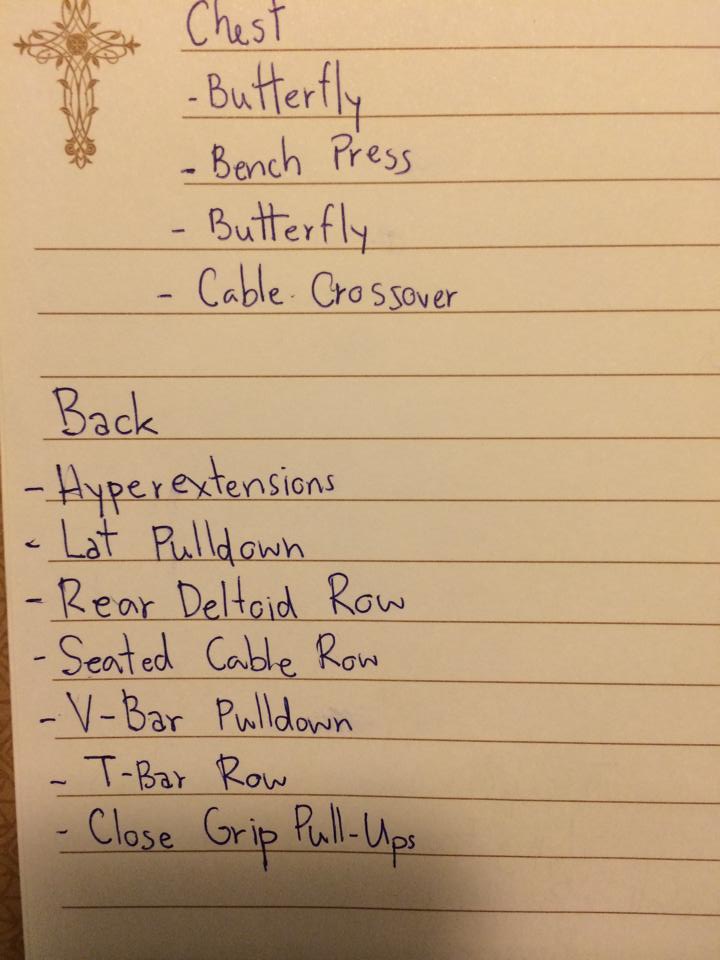 Chest
- Butterfly
- Bench Press
- Butterfly
- Cable Crossover
Back
- Hyperextensions
- Lat Pulldown
- Rear Deltoid Row
- Seated Cable Row
- V-Bar Pulldown
- T-Bar Row
- Close Grip Pull-Ups